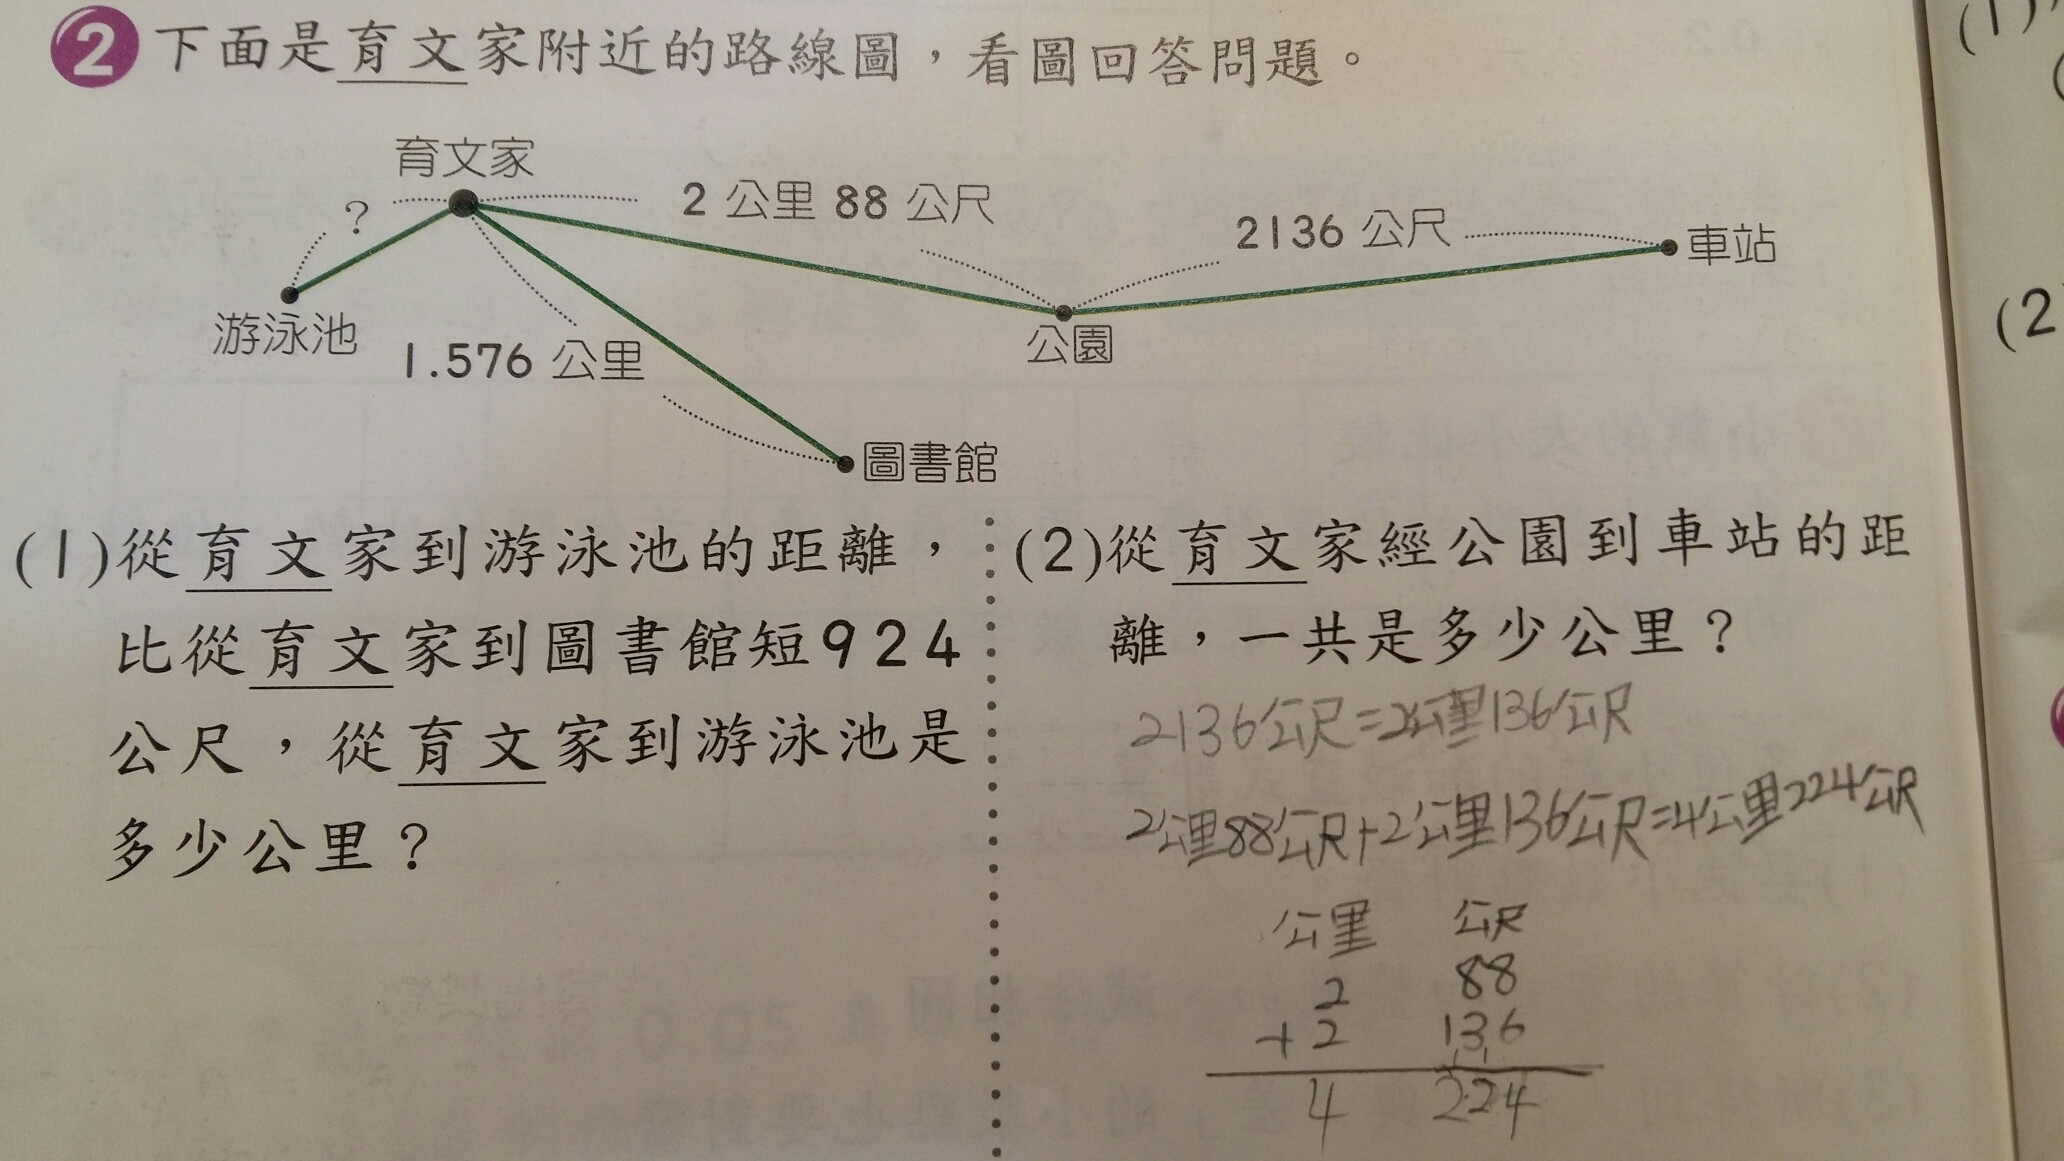 2 下面是育文家附近的路線圖，看圖回答問題。
育文家
?
2 公里 88 公尺
2136 公尺
車站
游泳池
1.576 公里
公園
圖書館
(1)從育文家到游泳池的距離，
比從育文家到圖書館短924
公尺，從育文家到游泳池是
多少公里？
(2)從育文家經公園到車站的距
離，一共是多少公里？
2136公尺=2公里136公尺
2公里88公尺+2公里136公尺=4公里224公尺
公里 公尺
2 88
+2 136
4 224
(1)
(2